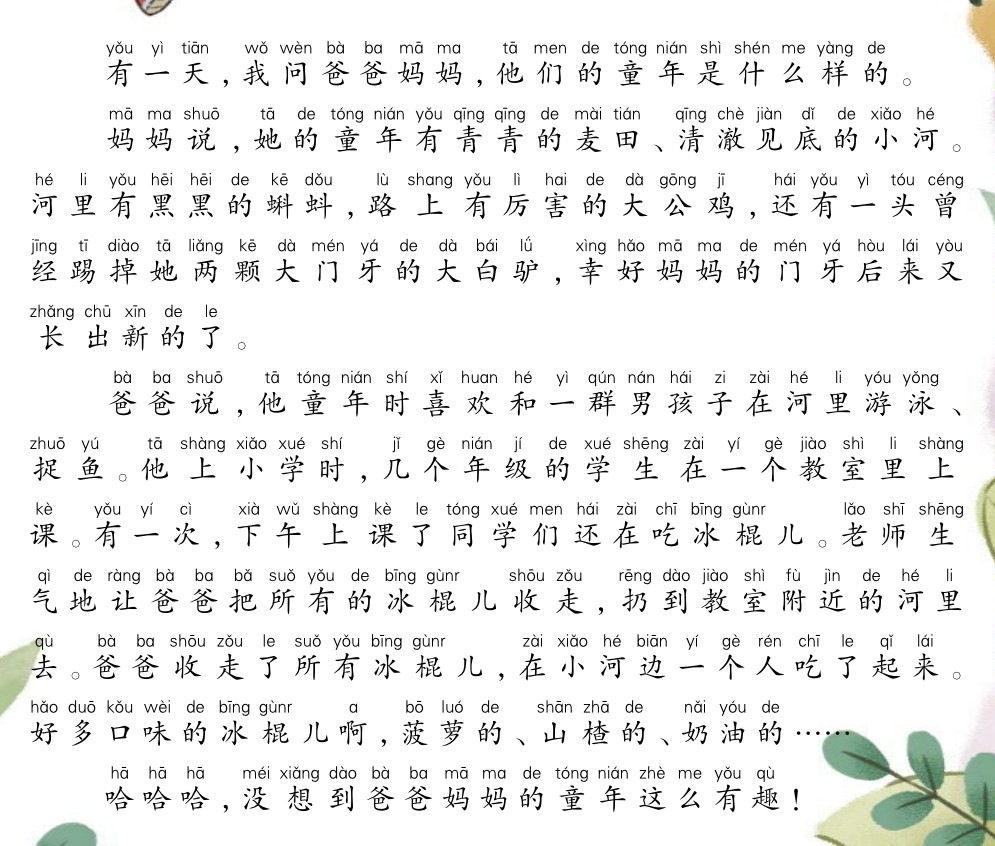 yǒu yì tiān wǒ wèn bà ba mā ma tā men de tóng nián shì shén me yàng de
有一天，我问爸爸妈妈，他们的童年是什么样的。
mā ma shuō tā de tóng nián yǒu qīng qīng de mài tián qīng chè jiàn dǐ de xiǎo hé
妈妈说，她的童年有青青的麦田、清澈见底的小河。
hé li yǒu hēi hēi de kē dǒu lù shang yǒu lì hai de dà gōng jī hái yǒu yì tóu céng
河里有黑黑的蝌蚪，路上有厉害的大公鸡，还有一头曾
jīng tī diào tā liǎng kē dà mén yá de dà bái lǘ xìng hǎo mā ma de mén yá hòu lái yòu
经踢掉她两颗大门牙的大白驴，幸好妈妈的门牙后来又
zhǎng chū xīn de le
长出新的了。
bà ba shuō tā tóng nián shí xǐ huan hé yì qún nán hái zi zài hé li yóu yǒng
爸爸说，他童年时喜欢和一群男孩子在河里游泳、
zhuō yú tā shàng xiǎo xué shí jǐ gè nián jí de xué shēng zài yí gè jiào shì li shàng
捉鱼。他上小学时，几个年级的学生在一个教室里上
kè yǒu yí cì xià wǔ shàng kè le tóng xué men hái zài chī bīng gùnr lǎo shī shēng
课。有一次，下午上课了同学们还在吃冰棍儿。老师生
qì de ràng bà ba bǎ suǒ yǒu de bīng gùnr shōu zǒu rēng dào jiào shì fù jìn de hé li
气地让爸爸把所有的冰棍儿收走，扔到教室附近的河里
qù bà ba shōu zǒu le suǒ yǒu bīng gùnr zài xiǎo hé biān yí gè rén chī le qǐ lái
去。爸爸收走了所有冰棍儿，在小河边一个人吃了起来。
hǎo duō kǒu wèi de bīng gùnr a bō luó de shān zhā de nǎi yóu de
好多口味的冰棍儿啊，菠萝的、山楂的、奶油的……
hā hā hā méi xiǎng dào bà ba mā ma de tóng nián zhè me yǒu qù
哈哈哈，没想到爸爸妈妈的童年这么有趣！